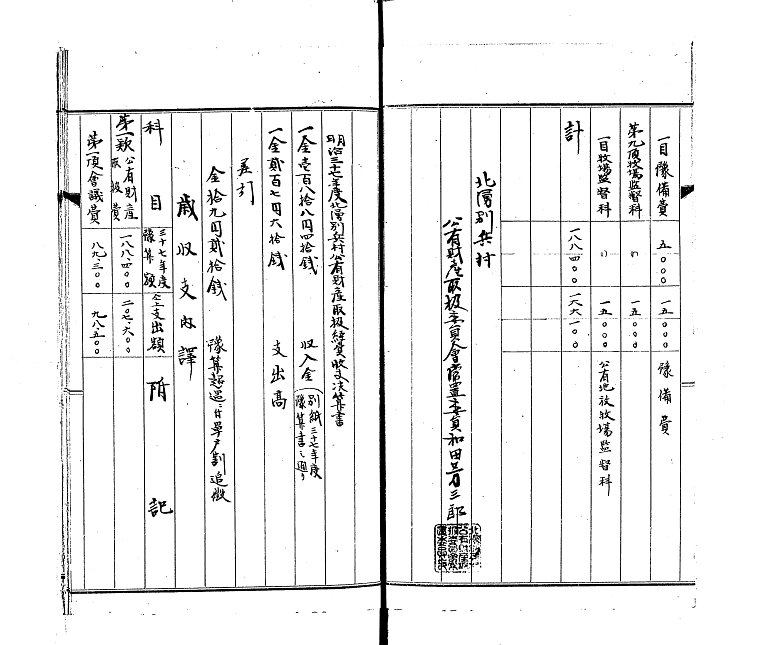 一目豫備費 五〇〇〇 一五〇〇〇 豫備費
第九項牧場監督料 〃 一五〇〇〇
一目牧場監督料 〃 一五〇〇〇 公有地放牧場監督料
計 一八八四〇〇 一六六一〇〇
公有財産取扱委員会常置委員和田
明治三十七年度北 別兵村公有財産取扱経費収支決算書
一金壱百八拾八円四拾銭 収入金(別紙三十七年度豫算書之通り)
一金貮百七円六拾銭 支出高
差引
金拾九円貮拾銭 豫算超過ニ付毎戸割追徴
歳収支内譯
科目 三十七年度豫算額 仝上支出額 附記
第一款公有財産取扱費 一八八四〇〇 二〇七六〇〇
第一項會議費 八九三〇〇 九八五〇〇